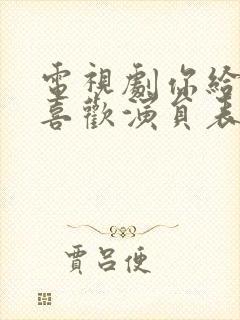 電視劇你給
喜歡演員表
賈呂便